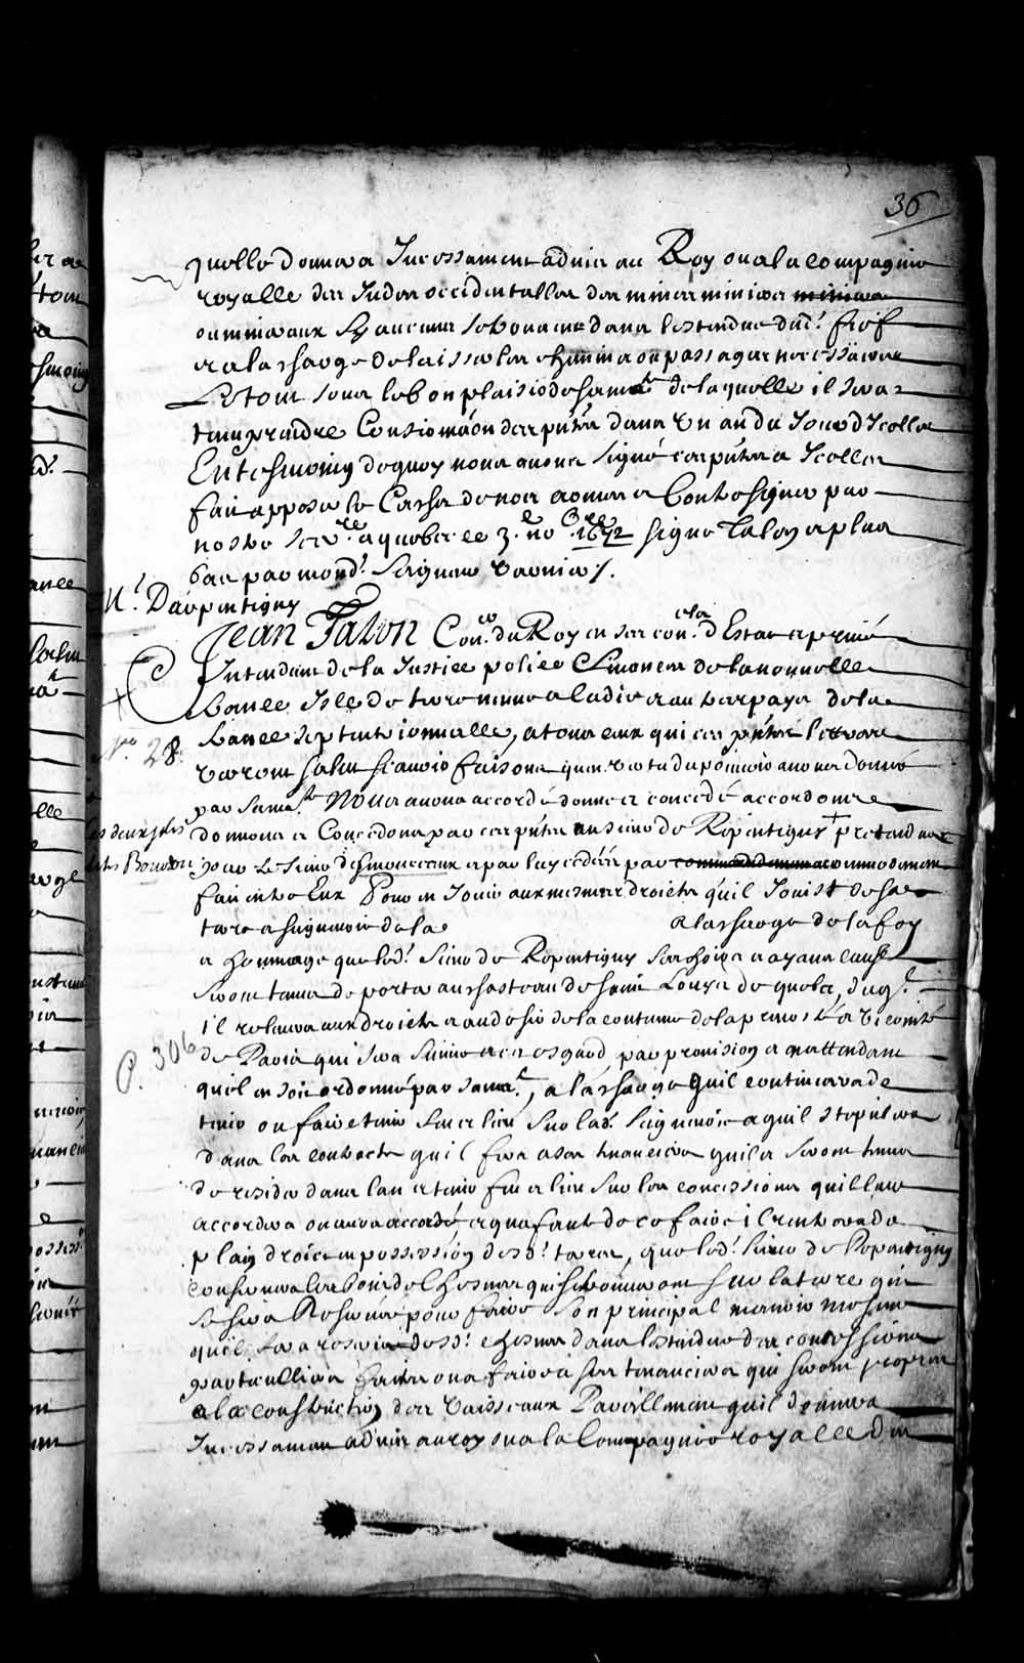 36
quelle donnera Incessament advis au Roy ou a la compagnie
royalle des Indes occidentalles des mines minieres
ou mineraux sy aucuns se trouvent dans l'estendue dud.t fief
et a la charge de laisser les chemins ou passages necessaires
Le tout sous le bon plaisir de sa ma.té de laquelle il sera
tenu prendre Confirmaõn des pñtes dans Un an du Jour d'Icelles
En tesmoing de quoy nous avons Signé ces pñtes a Icelles
fait apposer le Cachet de nos armes et Contresigner par
nostre Secr.re a quebec ce 3.e no.bre 1672 signé Talon et plus
bas par mond.t Seigneur Varnier /.
M.r Darpentigny
Jean Talon Con.er du Roy en ses con.els d'Estat et privé
Intendant de la Justice police & finances de la nouvelle
france Isle de terre neuve acadie et autres pays de la
france Septentrionnalle, a tous ceux qui ces pñtes lettres
N.o 28.
verront Salut scavoir faisons qu'en vertu du pouvoir a nous donné
par sa ma.té Nous avons accordé donné et concedé accordons
les deux jolis
donnons et Concedons par ces pñtes au sieur de Repentigny + pretendues
pour le Sieur desmousseaux et par luy cedées par accommodement
fait entre Eux Pour en Jouir aux mesmes droicts qu'il Jouist de sa
terre et seigneurie de la a la charge de la foy
et hommage que led.t Sieur de Repentigny ses hoirs et ayans cause
seront tenus de porter au chasteau de saint Louys de quebec, duq.l
il relevera aux droicts et au desir de la coutume de la prevosté et viconté
P. 306
de Paris qui sera suivie a cet esgard par provision et en attendant
qu'il en soit ordonné par sa ma.té, a la charge qu'il continuera de
tenir ou faire tenir feu et lieu sur lad. Seigneurie et qu'il stipulera
dans les contracts qu'il fera a ses tenanciers qu'ils seront tenus
de resider dans l'an et tenir feu et lieu sur les concessions qu'il leur
accordera ou aura accordé et qu'a faute de ce faire il rentrera de
plain droict en possession desd.t terres, que led.t sieur de Repentigny
conservera les bois de Chesnes qui se trouveront sur la terre qu'il
se sera Reservée pour faire son principal manoir mesme
qu'il fera reserve desd.t chesnes dans l'estendue des concessions
particullieres qui seront propres
a la construction des Vaisseaux Pareillement qu'il donnera
Incessament advis au roy ou a la Compagnie royalle des